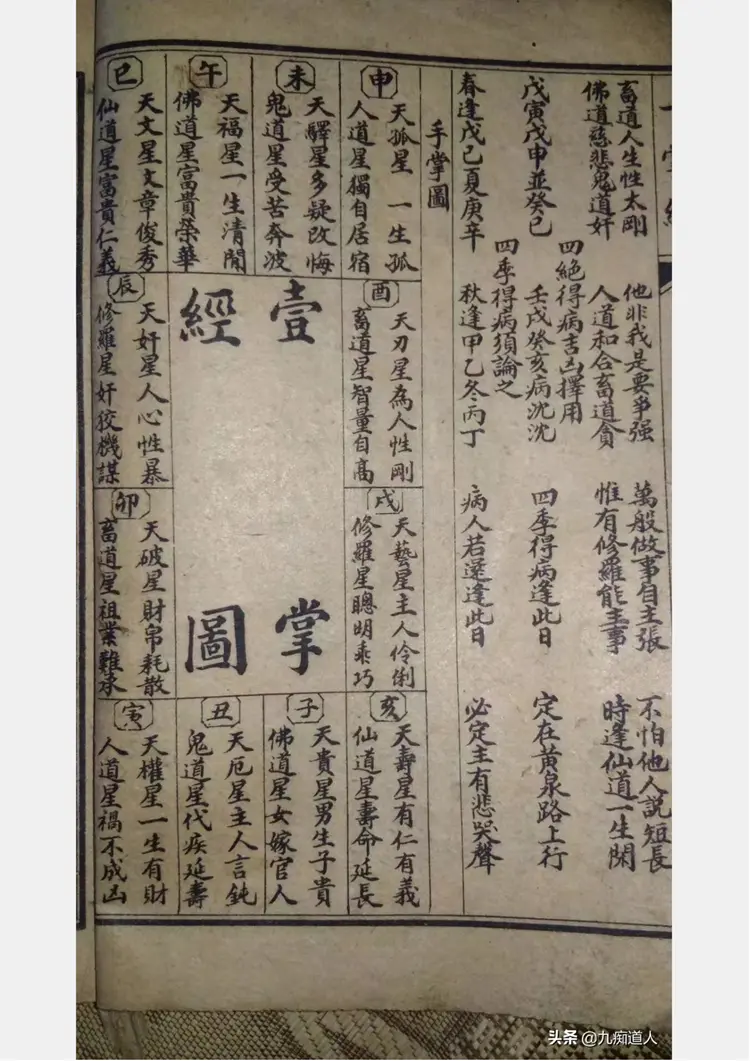 一掌經
畜道人生性太剛 他非我是要爭强 萬般做事自主張 不怕他人說短長
佛道慈悲鬼道奸 人道和合畜道貪 惟有修羅能主事 時逢仙道一生閑
四絕得病吉凶擇用
戊寅戊申並癸巳 壬戌癸亥病沈沈 四季得病逢此日 定在黃泉路上行
四季得病須論之
春逢戊己夏庚辛 秋逢甲乙冬丙丁 病人若還逢此日 必定主有悲哭聲
手掌圖
申
天孤星一生孤
人道星獨自居宿
未
天驛星多疑改悔
鬼道星受苦奔波
午
天福星一生清閒
佛道星富貴榮華
巳
天文星文章俊秀
仙道星富貴仁義
酉
天刃星為人性剛
畜道星智量自高
壹掌
經圖
辰
天奸星人心性暴
修羅星奸狡機謀
戌
天藝星主人伶俐
修羅星聰明乖巧
卯
天破星財帛耗散
畜道星祖業難承
亥
天壽星有仁有義
仙道星壽命延長
子
天貴星男生子貴
佛道星女嫁官人
丑
天厄星主人言鈍
鬼道星代疾延壽
寅
天權星一生有財
人道星禍不成凶
头条 @九痴道人